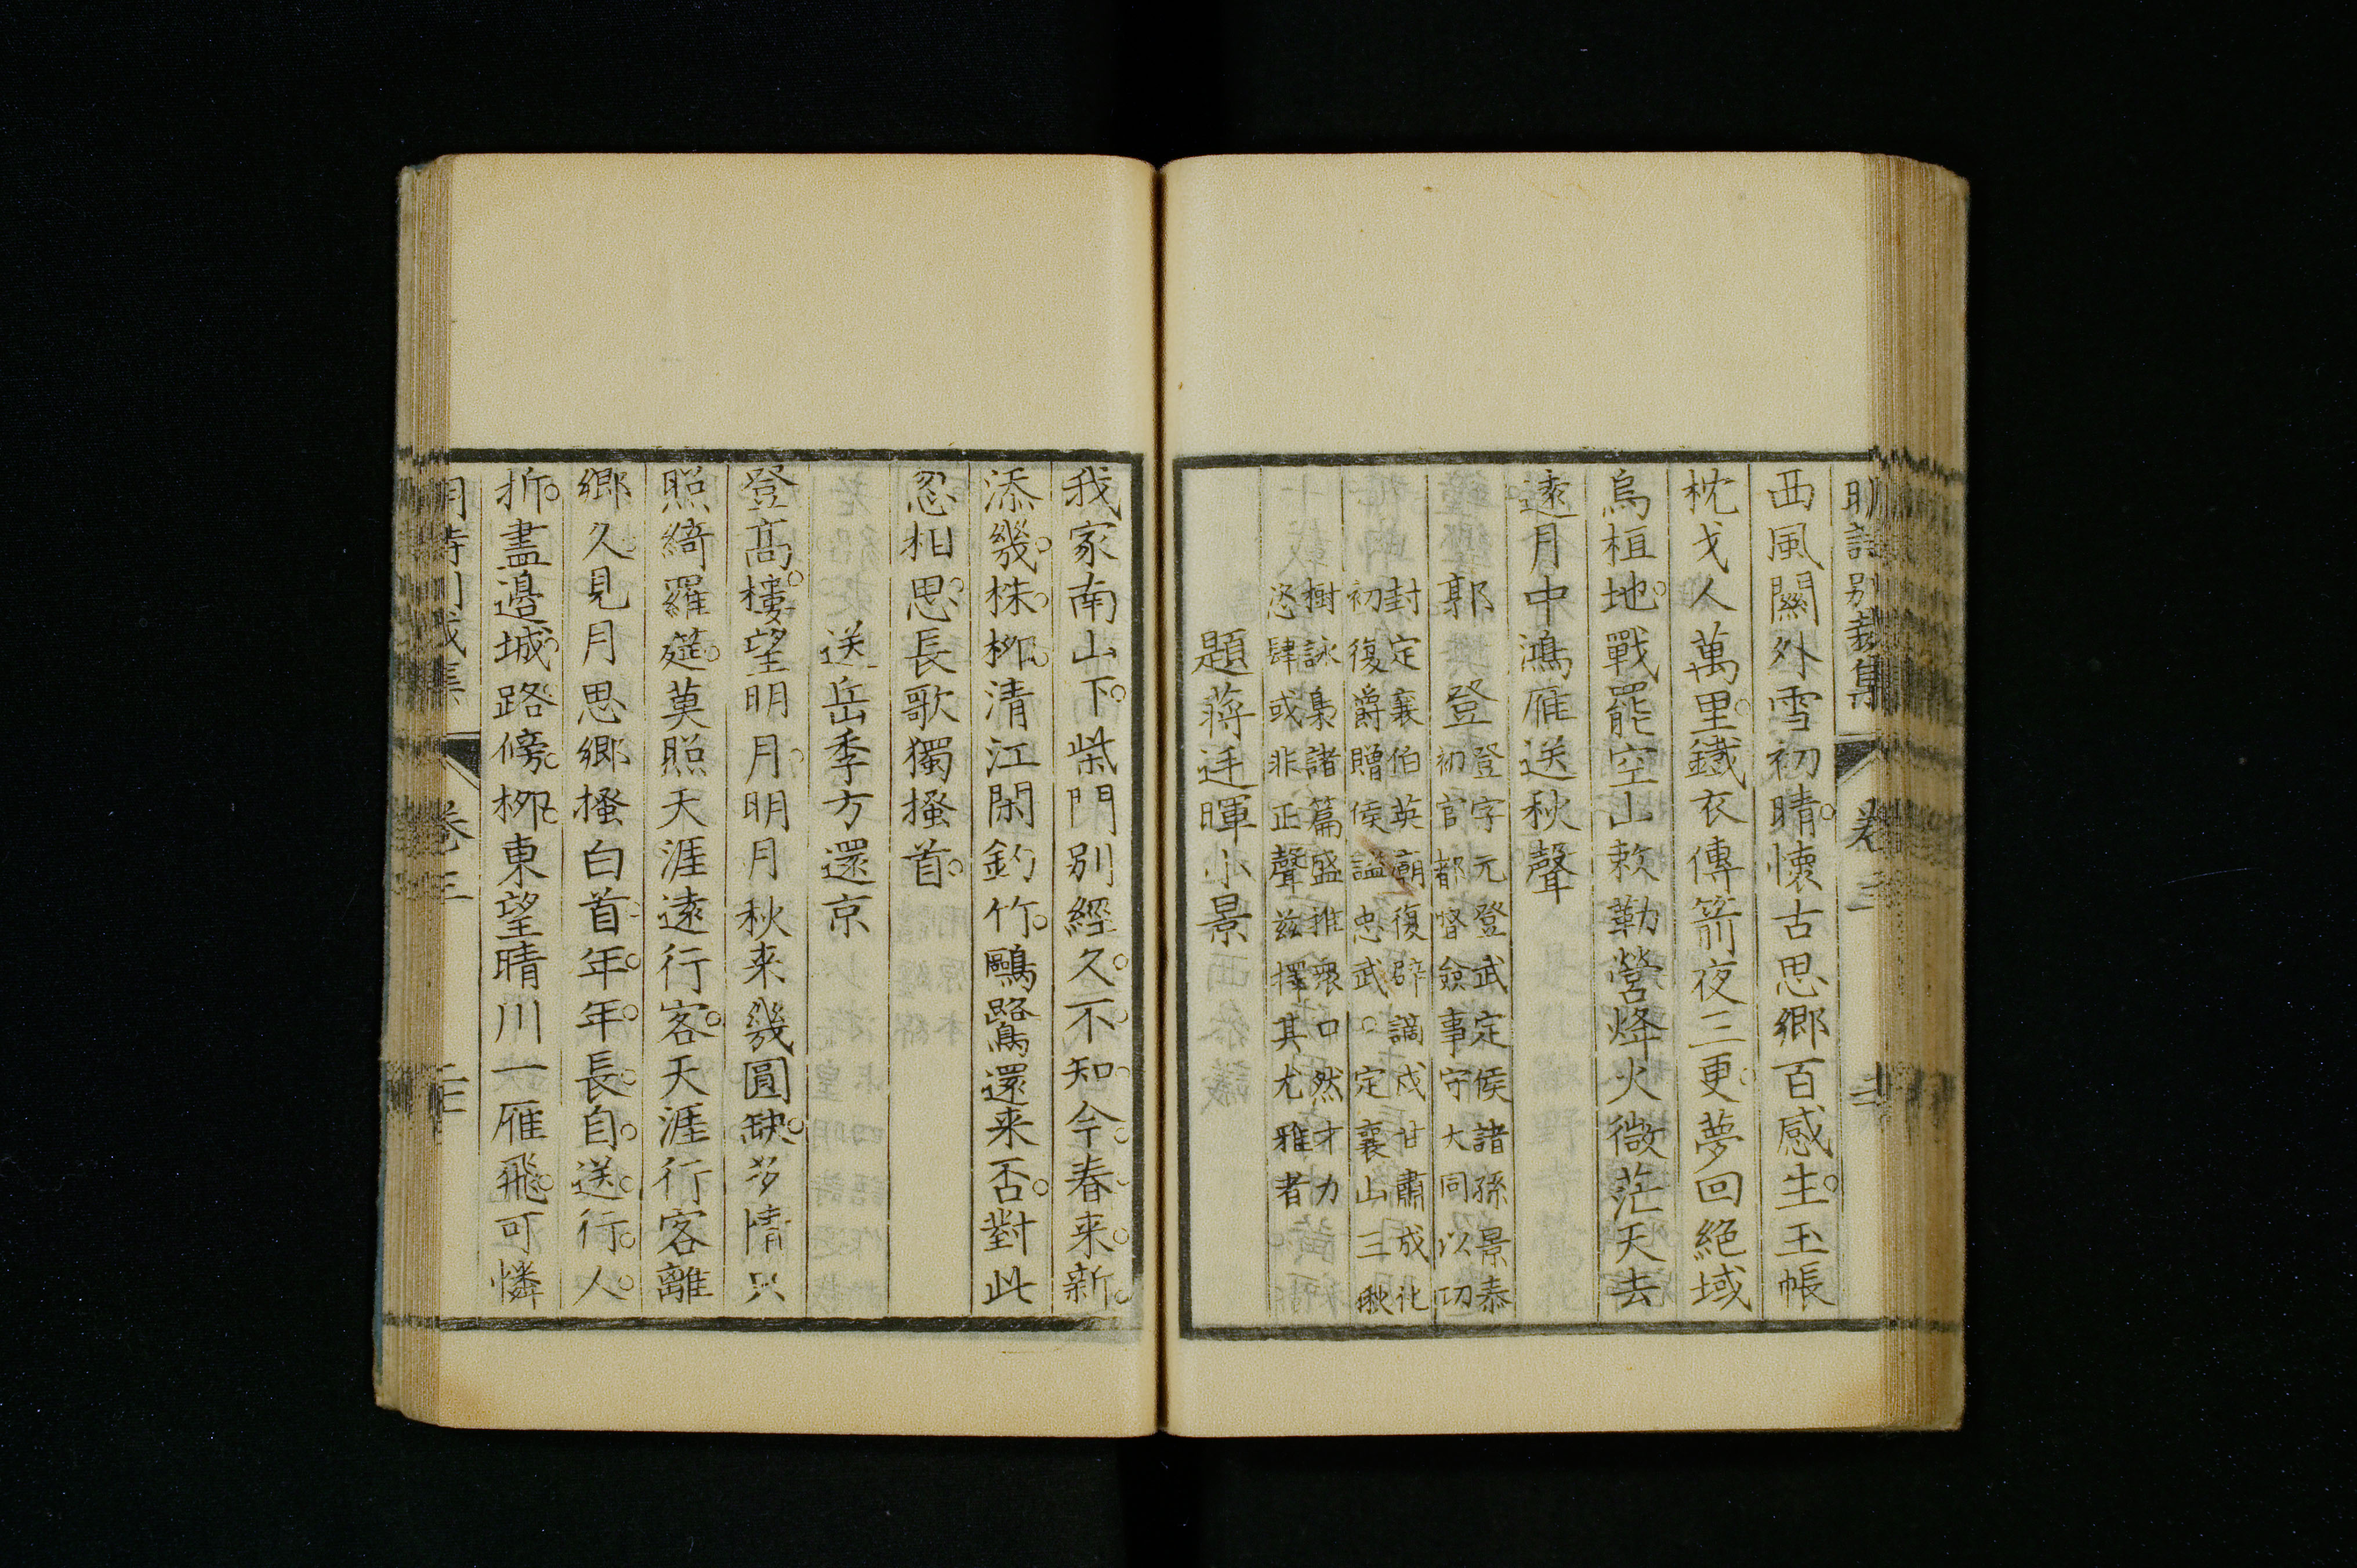 明詩別裁集 卷三
西風關外雪初晴懷古思鄉百感生玉帳
枕戈人萬里鐵衣傳箭夜三更夢回絕域
烏桓地戰罷空山敕勒營烽火微茫天去
遠月中鴻雁送秋聲
郭登
登字元登武定侯諸孫景泰
初官都督僉事守大同以功
封定襄伯英廟復辟謫戍甘肅成化
初復爵贈侯謚忠武○定襄山三楸
樹詠梟諸篇盛推衆口然才力
恣肆或非正聲玆擇其尤雅者
題蔣廷暉小景
我家南山下柴門別經久不知今春来新
添幾株柳清江閑釣竹鷗鷺還来否對此
忽相思長歌獨搔首
送岳季方還京
登高樓望明月明月秋来幾圓缺多情只
照綺羅筵莫照天涯遠行客天涯行客離
鄉久見月思鄉搔白首年年長自送行人
折盡邉城路傍柳東望晴川一雁飛可憐
明詩別裁集 卷三